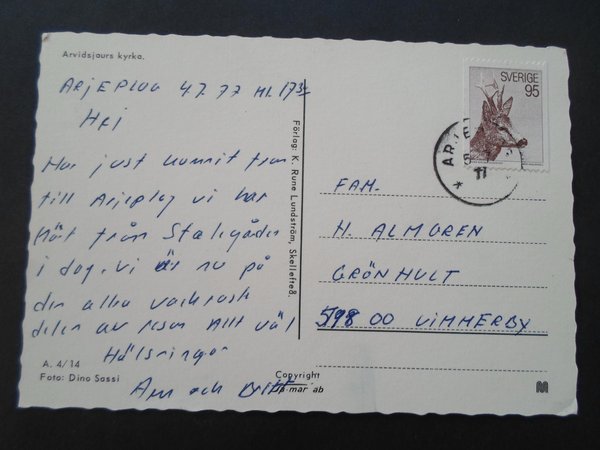 Arvidsjaurs kyrka.
ARJEPLOG 4.7.77 kl. 17
HEJ
Har just kommit fram
till Arjeplog vi har
åkt från
i dag. vi är nu på
den allra vackraste
delen av resan Allt väl
Hälsningar
och Britt
A. 4/14
Foto: Dino Sassi
Förlag: K. Rune Lundström, Skellefteå.
Copyright
mar ab
SVERIGE
95
ARJE
11
FAM.
H. ALMGREN
GRÖNHULT
598 00 VIMMERBY
M